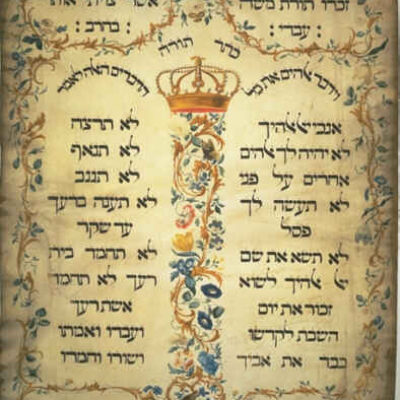 זכרו תורת משה אשר
: עבדי : : בחרב :
כתר תורה
וידבר אלהים את כל
הדברים האלה לאמר
אנכי יי אלהיך
לא יהיה לך אלהים
אחרים על פני
לא תעשה לך
פסל
לא תשא את שם
יי אלהיך לשוא
זכור את יום
השבת לקדשו
כבד את אביך
לא תרצח
לא תנאף
לא תגנב
לא תענה ברעך
עד שקר
לא תחמד בית
רעך לא תחמד
אשת רעך
ועבדו ואמתו
ושורו וחמרו